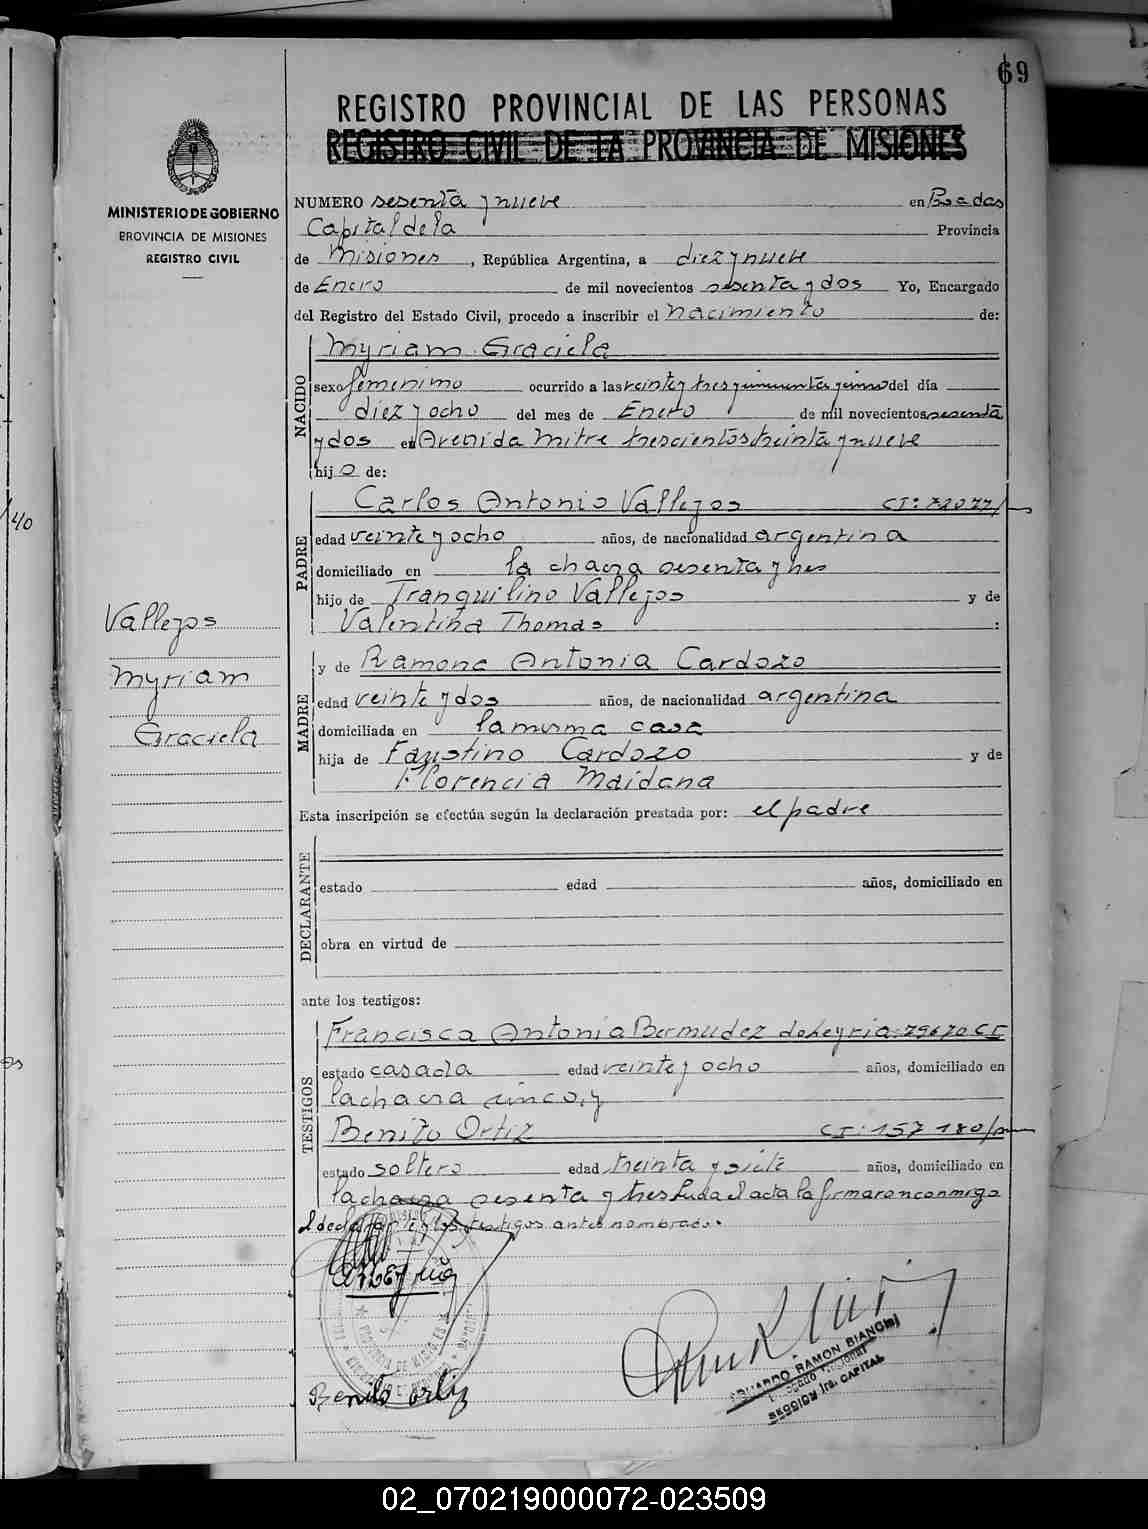 69
REGISTRO PROVINCIAL DE LAS PERSONAS
REGISTRO CIVIL DE LA PROVINCIA DE MISIONES
MINISTERIO DE GOBIERNO
PROVINCIA DE MISIONES
REGISTRO CIVIL
NUMERO sesenta y nueve en Posadas
Capital de la Provincia
de Misiones, República Argentina, a diez y nueve
de Enero de mil novecientos sesenta y dos Yo, Encargado
del Registro del Estado Civil, procedo a inscribir el nacimiento de:
NACIDO
Myriam Graciela
sexo femenino ocurrido a las veinte y tres y cincuenta y cinco del día
diez y ocho del mes de Enero de mil novecientos sesenta
y dos en Avenida Mitre trescientos treinta y nueve
hijo de:
PADRE
Carlos Antonio Vallejos CI: 72077/
edad veinte y ocho años, de nacionalidad argentina
domiciliado en la chacra sesenta y tres
hijo de Tranquilino Vallejos y de
Valentina Thomas :
MADRE
y de Ramona Antonia Cardozo
edad veinte y dos años, de nacionalidad argentina
domiciliada en la misma casa
hija de Faustino Cardozo y de
Florencia Maidana
Esta inscripción se efectúa según la declaración prestada por: el padre
DECLARANTE
estado edad años, domiciliado en
obra en virtud de
ante los testigos:
TESTIGOS
Francisca Antonia Bermudez de Leyria: 79670 CI
estado casada edad veinte y ocho años, domiciliado en
la chacra cinco, y
Benito Ortiz CI: 157180/
estado soltero edad treinta y siete años, domiciliado en
la chacra sesenta y tres Leida el acta la firmaron conmigo
el declarante y los testigos antes nombrados.
Vallejos
Myriam
Graciela
/40
Benito Ortiz
EDUARDO RAMON BIANCHI
SECCION 1ra. CAPITAL
02_070219000072-023509